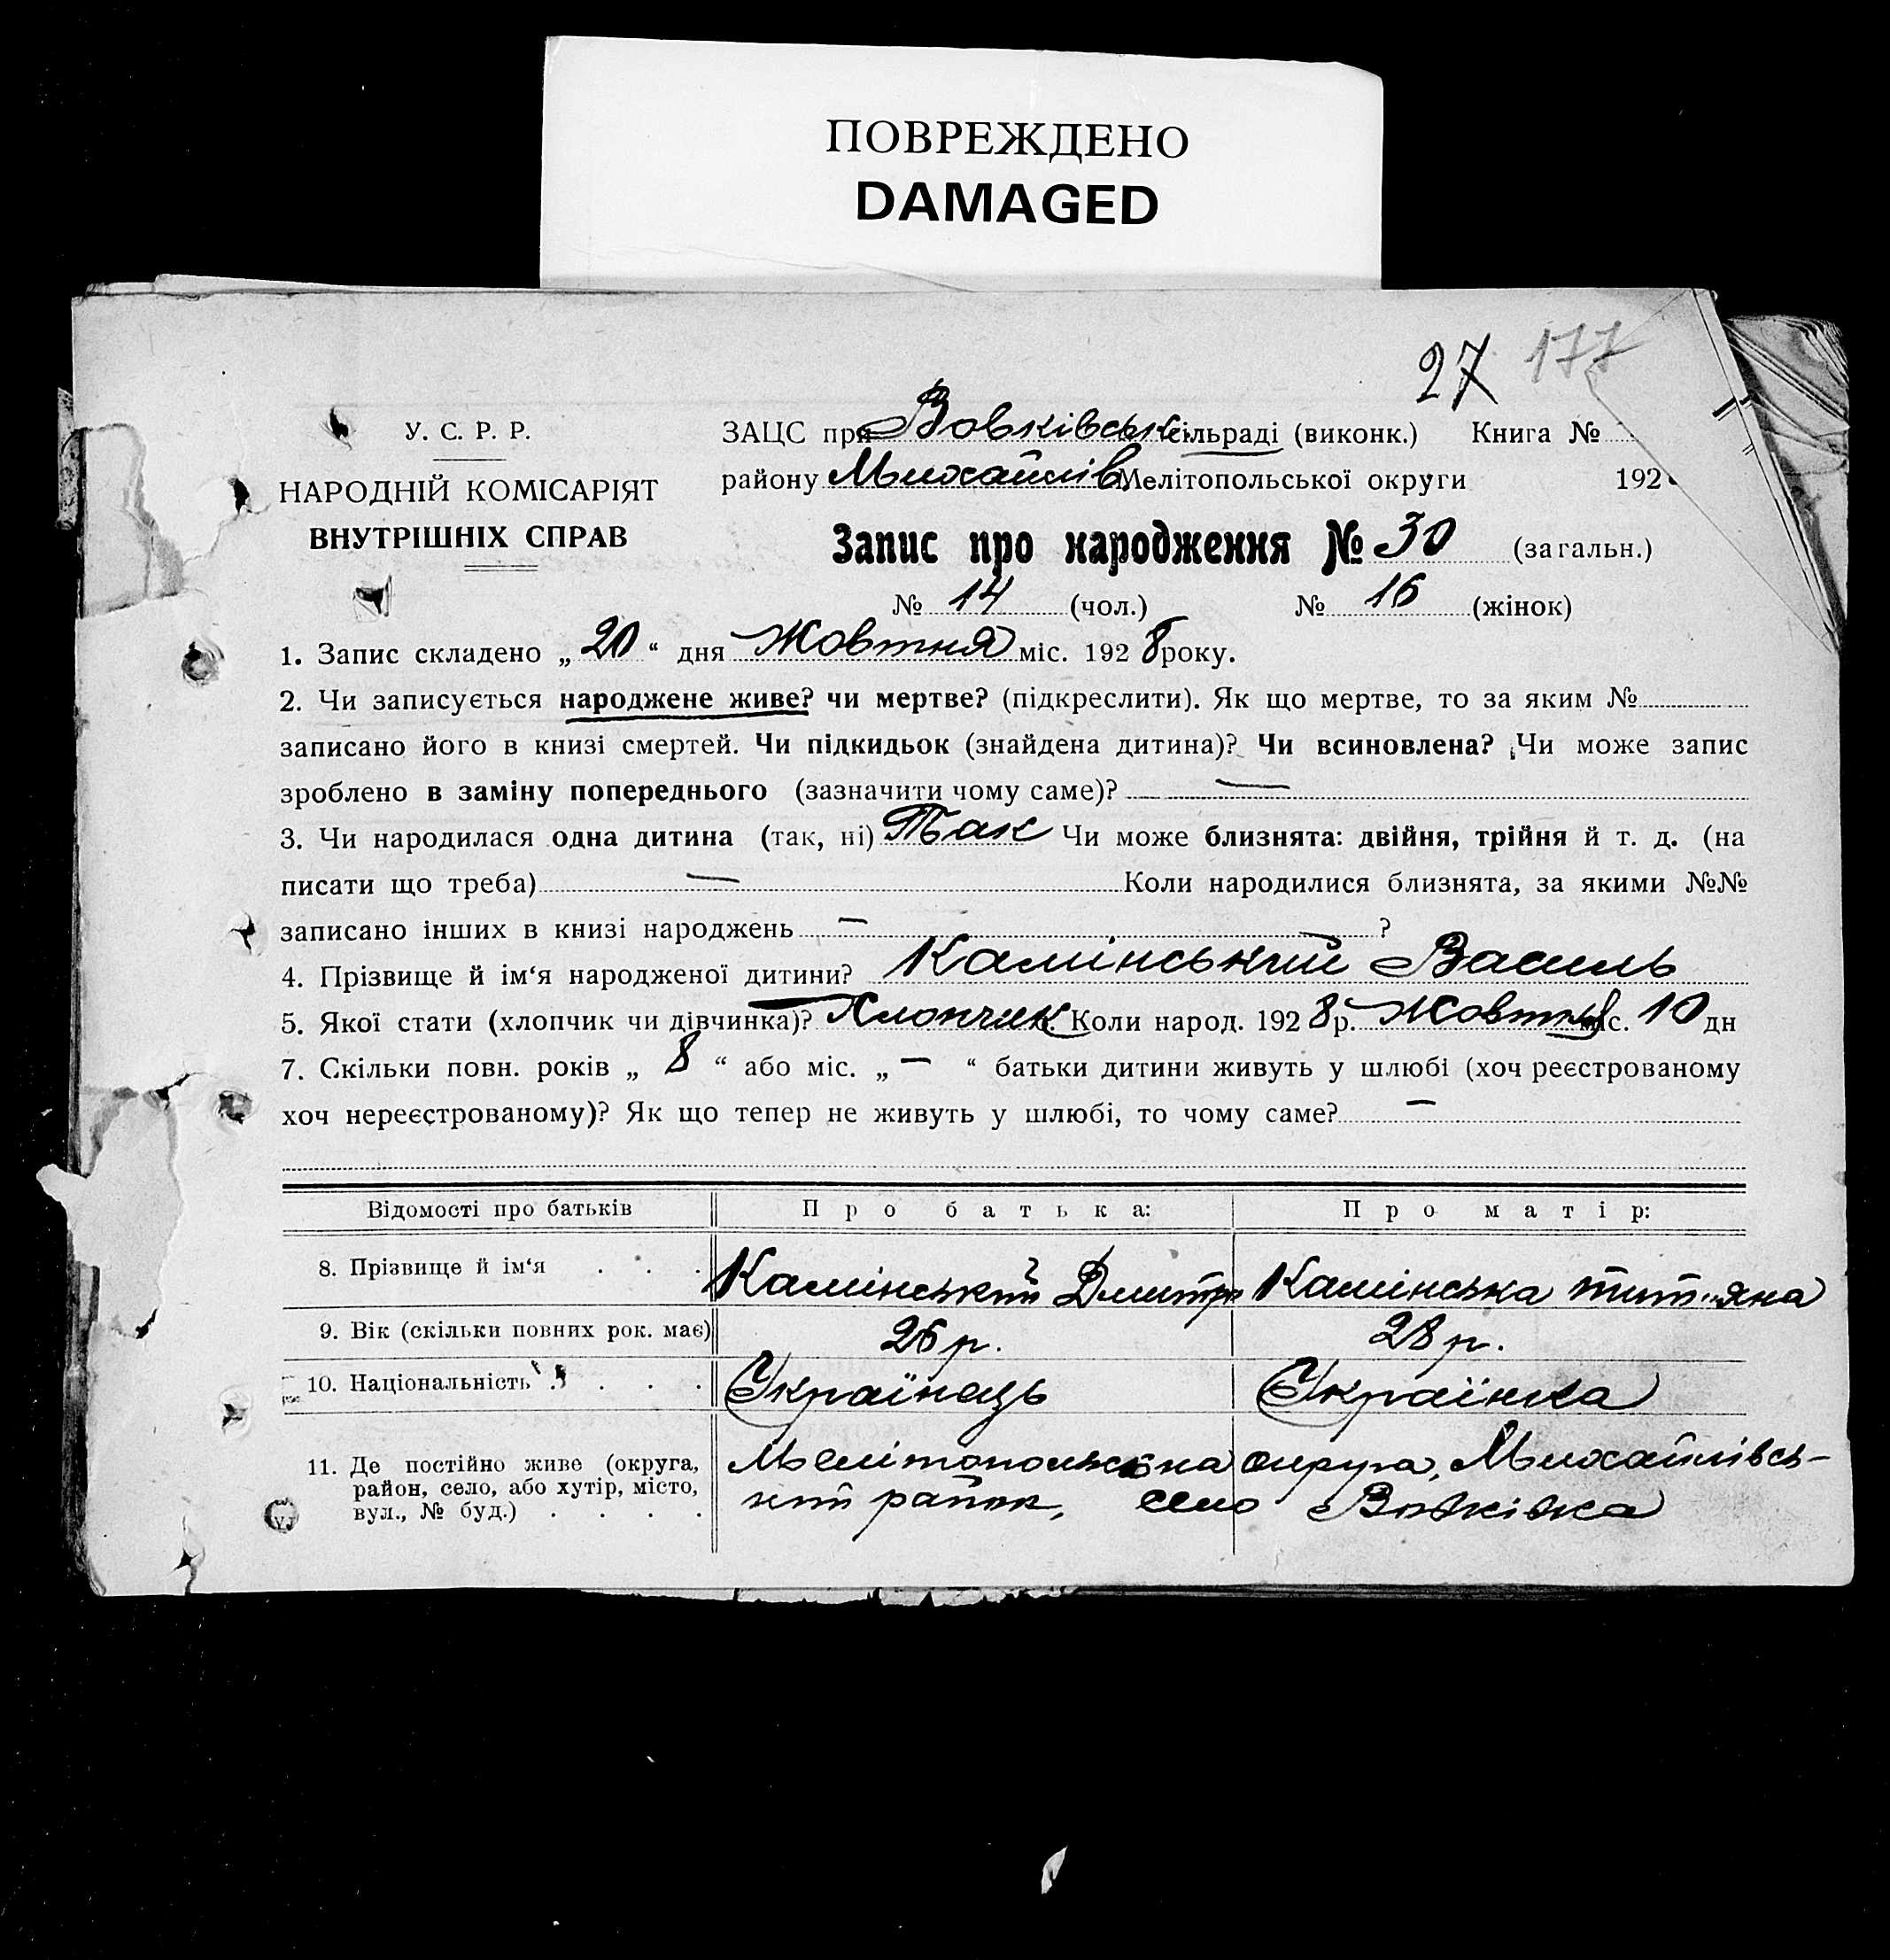 ПОВРЕЖДЕНО
DAMAGED
27 177
У. С. Р. Р.
НАРОДНІЙ КОМІСАРІЯТ
ВНУТРІШНІХ СПРАВ
ЗАЦС при Вовківськ. сільраді (виконк.) Книга №
району Михайлів. Мелітопольської округи 192
Запис про народження № 30 (загальн.)
№ 14 (чол.) № 16 (жінок)
1. Запис складено „ 20 “ дня Жовтня міс. 192 8 року.
2. Чи записується народжене живе? чи мертве? (підкреслити). Як що мертве, то за яким №
записано його в книзі смертей. Чи підкидьок (знайдена дитина)? Чи всиновлена? Чи може запис
зроблено в заміну попереднього (зазначити чому саме)? —
3. Чи народилася одна дитина (так, ні) Так Чи може близнята: двійня, трійня й т. д. (на
писати що треба) — Коли народилися близнята, за якими №№
записано інших в книзі народжень — ?
4. Прізвище й ім‘я народженої дитини? Камінський Василь
5. Якої стати (хлопчик чи дівчинка)? Хлопчик Коли народ. 192 8 р. Жовтня міс. 10 дн
7. Скільки повн. років „ 8 “ або міс. „ — “ батьки дитини живуть у шлюбі (хоч реєстрованому
хоч нереєстрованому)? Як що тепер не живуть у шлюбі, то чому саме? —
Відомості про батьків Про батька: Про матір:
8. Прізвище й ім‘я . . . Камінський Дмитр Камінська
9. Вік (скільки повних рок. має) 26 р. 28 р.
10. Національність . . . . Українець Українка
11. Де постійно живе (округа, Мелітопольська округа, Михайлівсь-
район, село, або хутір, місто, кий район, село Вовківка
вул., № буд.) . . . .